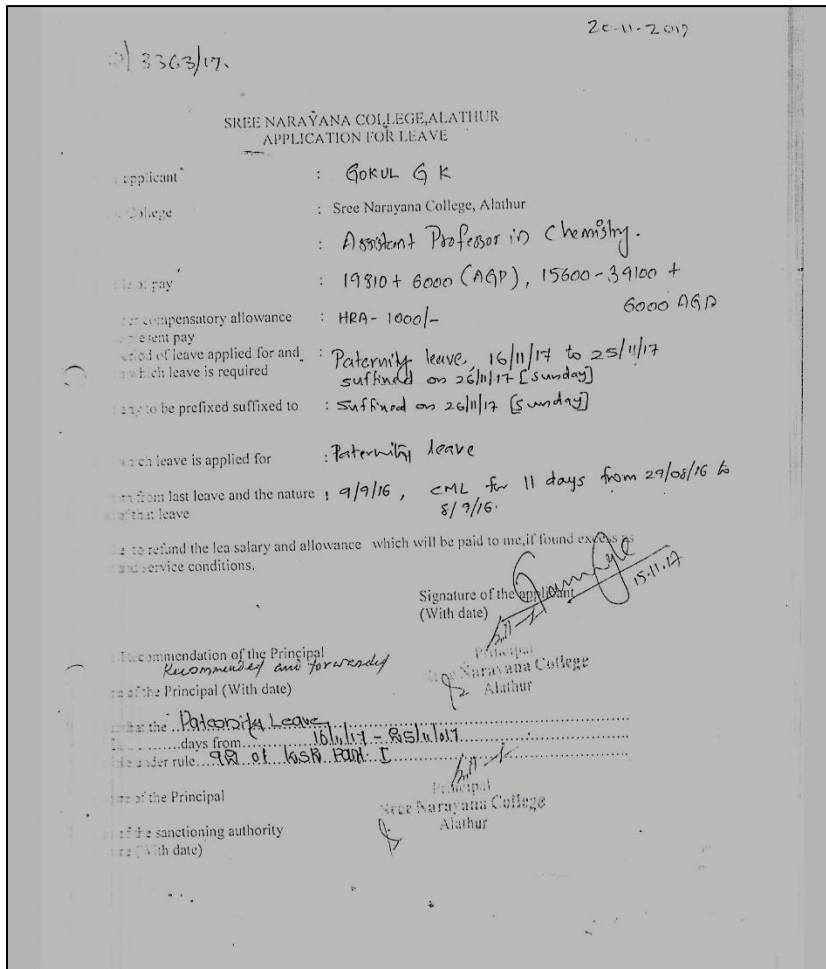 20-11-2017
3363/17.
SREE NARAYANA COLLEGE,ALATHUR
APPLICATION FOR LEAVE
applicant : GOKUL G K
College : Sree Narayana College, Alathur
: Assistant Professor in Chemistry.
of pay : 19810 + 6000 (AGP), 15600-39100 +
6000 AGP
compensatory allowance : HRA- 1000/-
present pay
of leave applied for and : Paternity leave, 16/11/17 to 25/11/17
which leave is required suffixed on 26/11/17 [Sunday]
to be prefixed suffixed to : suffixed on 26/11/17 [Sunday]
which leave is applied for : Paternity leave
from last leave and the nature : 9/9/16, CML for 11 days from 29/08/16 to
of that leave 8/9/16.
to refund the lea salary and allowance which will be paid to me,if found excess as
and service conditions.
Signature of the applicant
(With date) 15.11.17
Recommendation of the Principal
Recommended and forwarded
Principal
Sree Narayana College
Alathur
of the Principal (With date)
that the Paternity Leave
days from 16/11/17 - 25/11/17
under rule of KSR Part I
of the Principal
Principal
Sree Narayana College
Alathur
of the sanctioning authority
(With date)